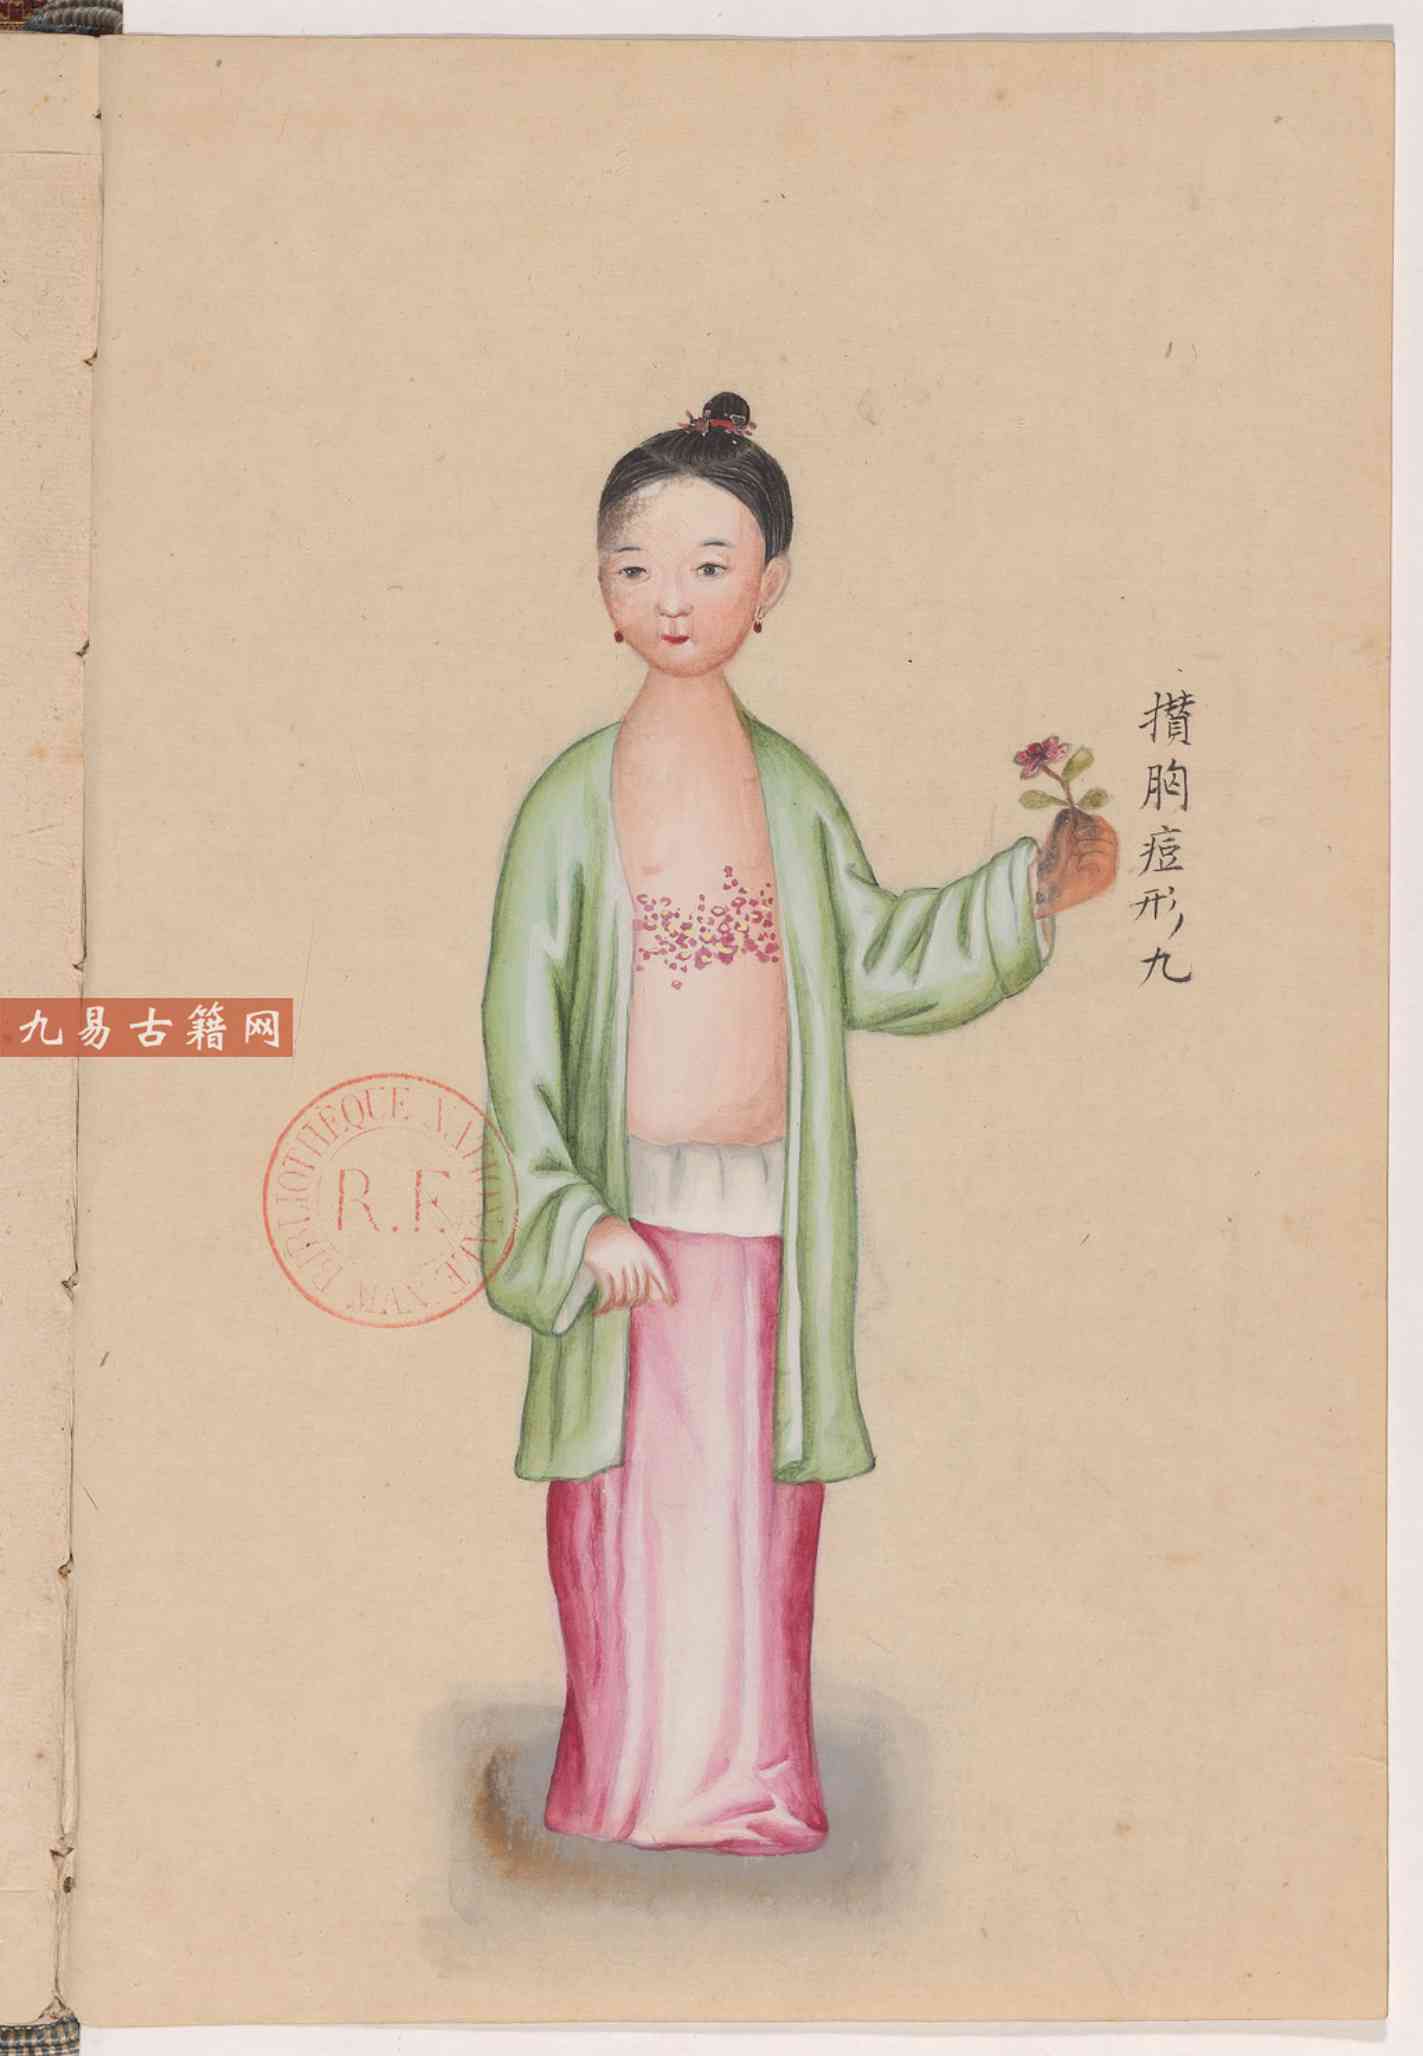 攢胸痘形九
九易古籍网
BIBLIOTHÈQUE NATIONALE MSS
R.F.